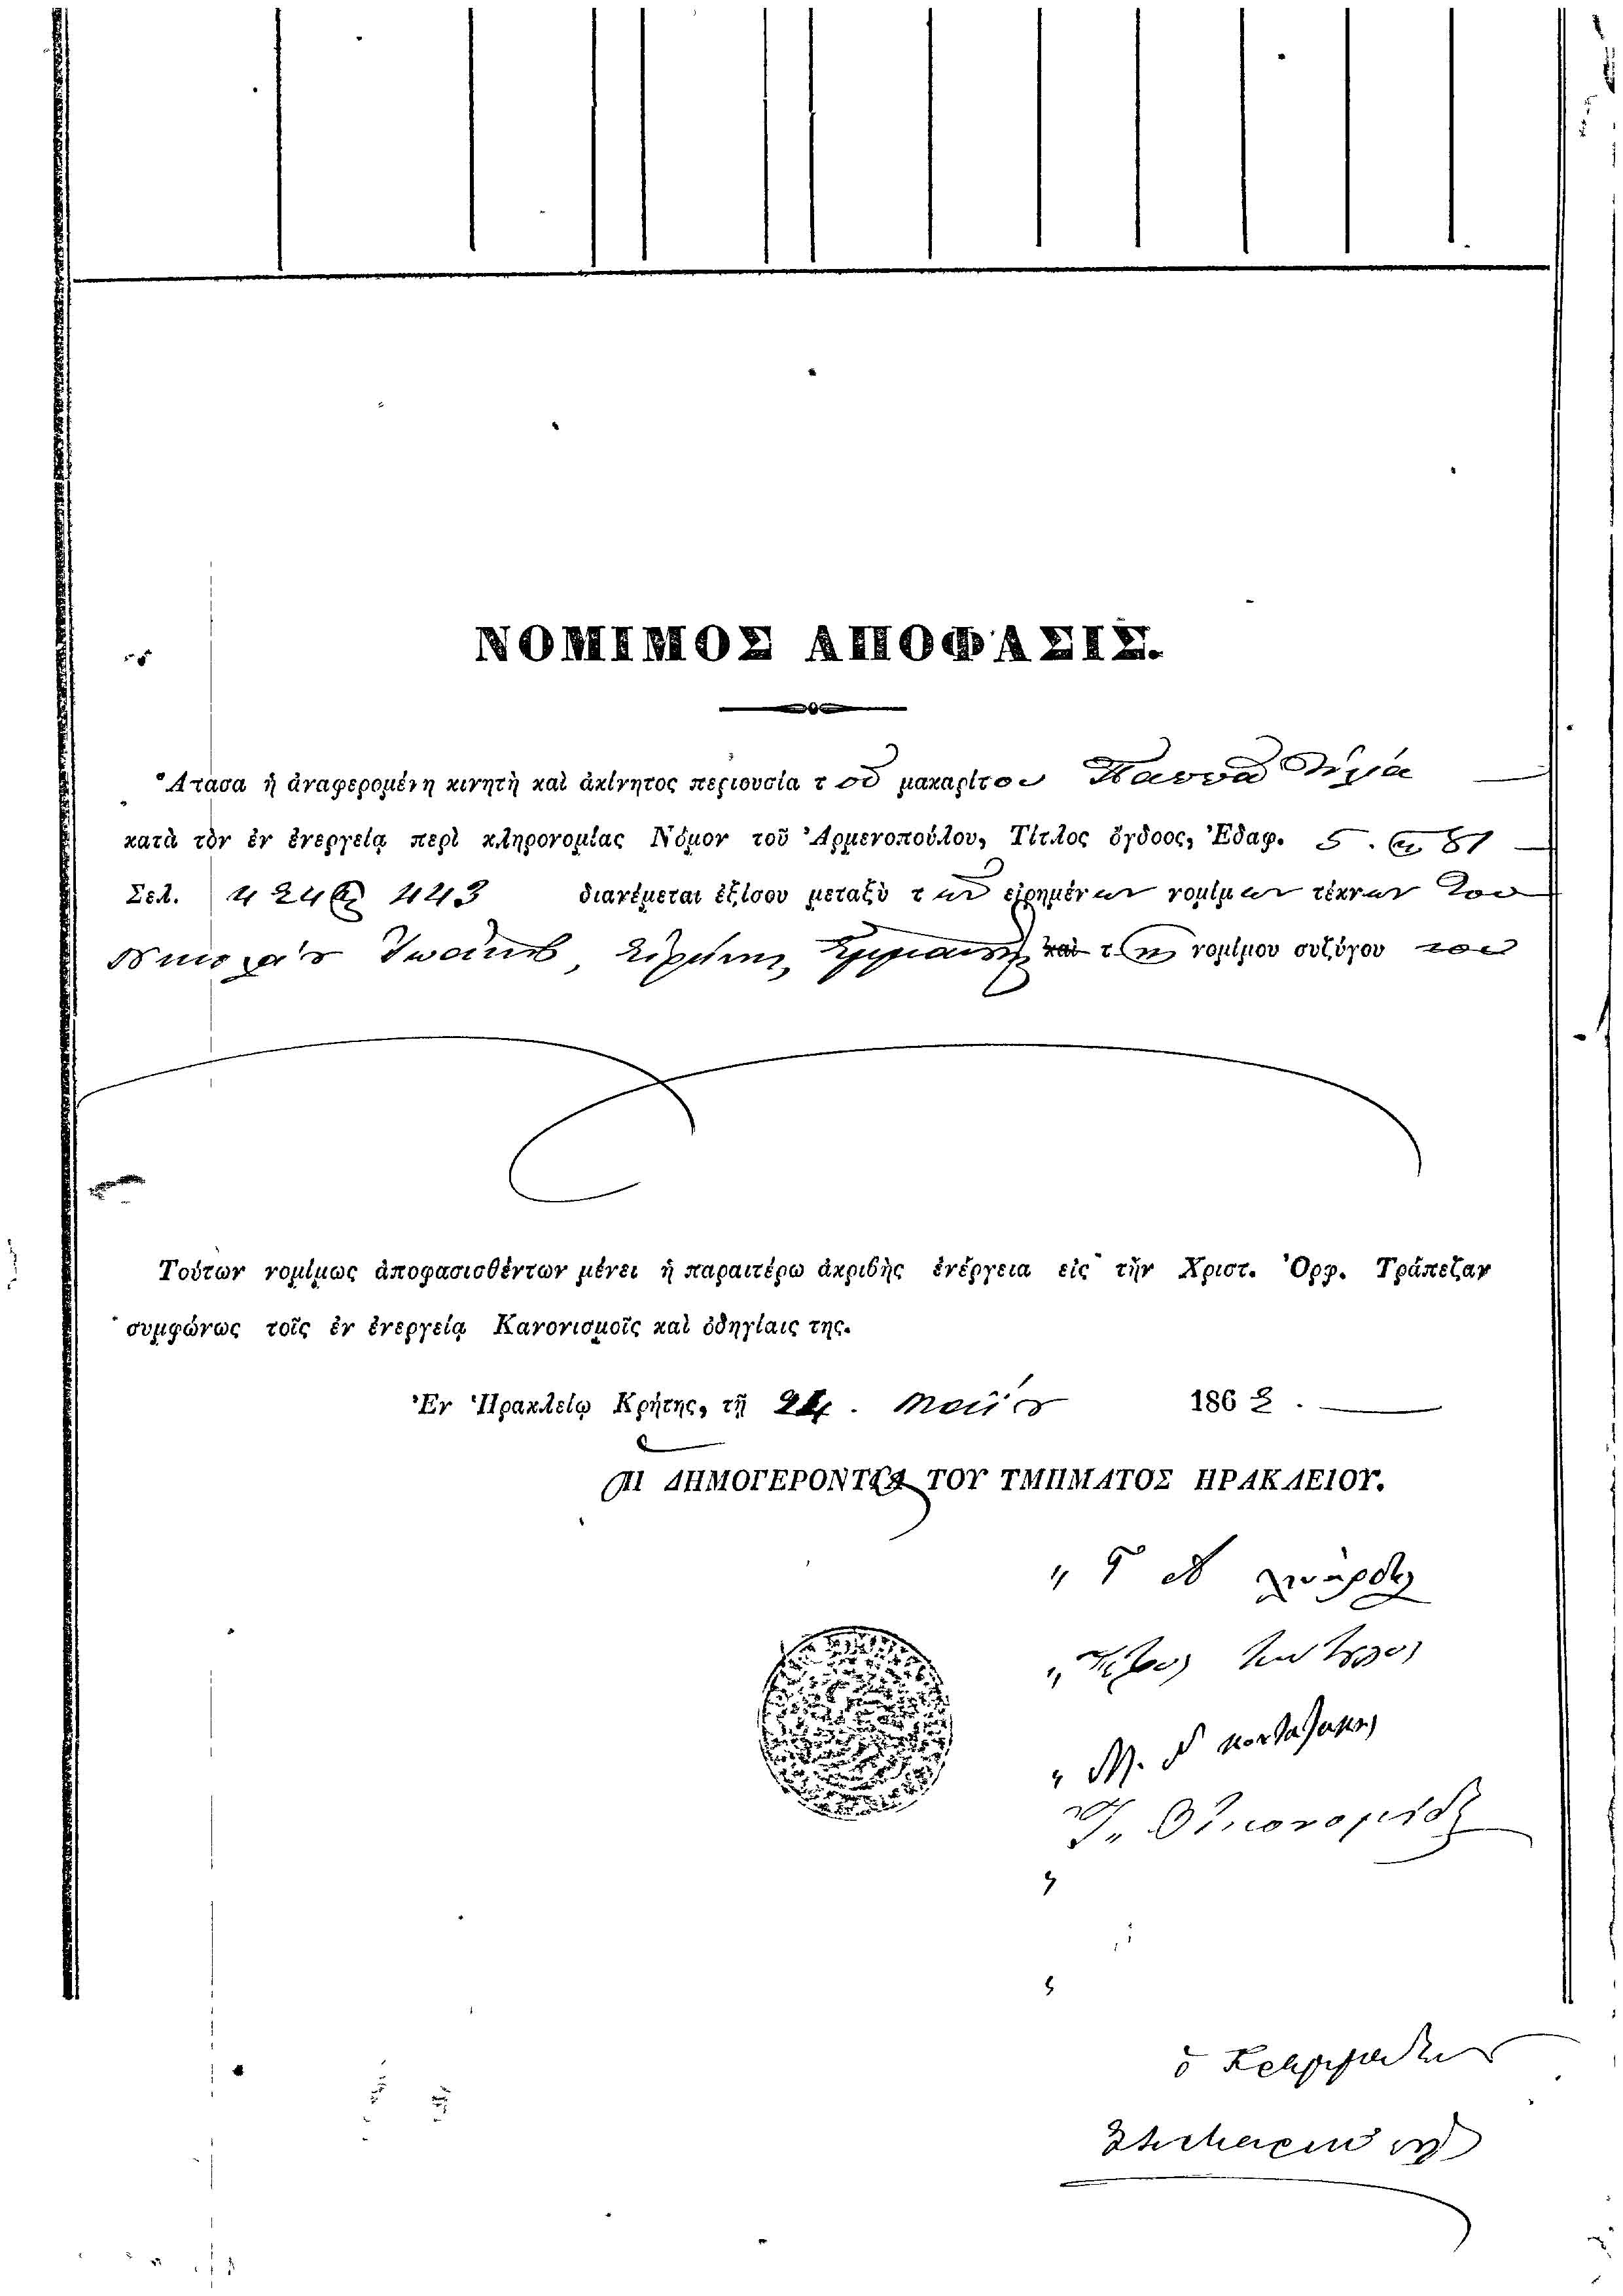 ΝΟΜΙΜΟΣ ΑΠΟΦΑΣΙΣ.
Ἅπασα ἡ ἀναφερομένη κινητὴ καὶ ἀκίνητος περιουσία τοῦ μακαρίτου Παππᾶ
κατὰ τὸν ἐν ἐνεργείᾳ περὶ κληρονομίας Νόμον τοῦ Ἀρμενοπούλου, Τίτλος ὄγδοος, Ἐδαφ. 5. 81
Σελ. 424 443 διανέμεται ἐξίσου μεταξὺ τῶν εἰρημένων νομίμων τέκνων του
Νικολάου Ἰωάννου, Εἰρήνης, Ἐμμανουὴλ καὶ τῆς νομίμου συζύγου του
Τούτων νομίμως ἀποφασισθέντων μένει ἡ παραιτέρω ἀκριβὴς ἐνέργεια εἰς τὴν Χριστ. Ὀρφ. Τράπεζαν
συμφώνως τοῖς ἐν ἐνεργείᾳ Κανονισμοῖς καὶ ὁδηγίαις της.
Ἐν Ἡρακλείῳ Κρήτης, τῇ 24. Μαΐου 1868.
ΟΙ ΔΗΜΟΓΕΡΟΝΤΕΣ ΤΟΥ ΤΜΗΜΑΤΟΣ ΗΡΑΚΛΕΙΟΥ.
Ι. Οἰκονομίδης
ὁ Γραμματεὺς